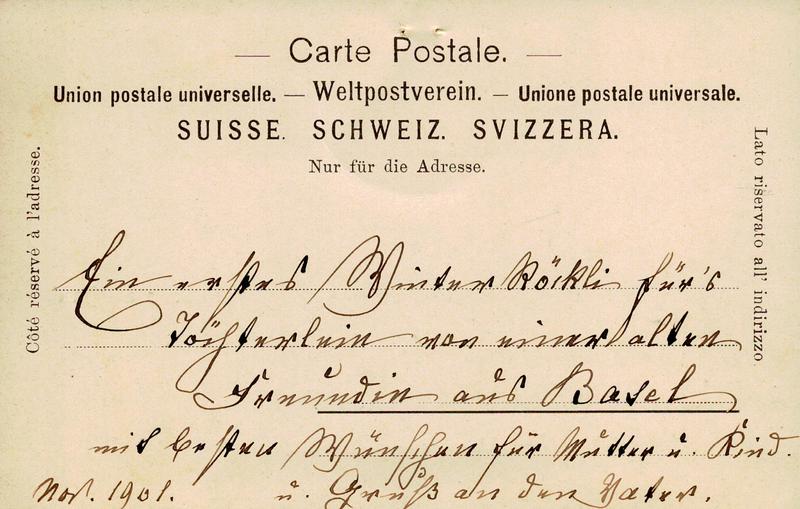 Carte Postale.
Union postale universelle. — Weltpostverein. — Unione postale universale.
SUISSE. SCHWEIZ. SVIZZERA.
Nur für die Adresse.
Côté réservé à l'adresse.
Lato riservato all' indirizzo.
Ein erstes Winter Röckli für's
Töchterlein von einer alten
Freundin aus Basel
mit besten Wünschen für Mutter u. Kind.
Nov. 1901. u. Gruß an den Vater.